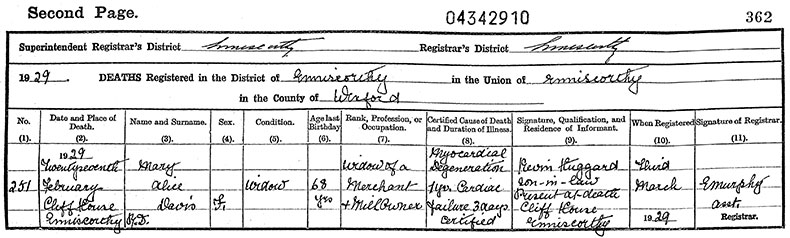 Second Page. 04342910 362
Superintendent Registrar's District Enniscorthy Registrar's District Enniscorthy
1929. DEATHS Registered in the District of Enniscorthy in the Union of Enniscorthy
in the County of Wexford
No. Date and Place of Death. Name and Surname. Sex. Condition. Age last Birthday Rank, Profession, or Occupation. Certified Cause of Death and Duration of Illness. Signature, Qualification, and Residence of Informant. When Registered Signature of Registrar.
(1). (2). (3). (4). (5). (6). (7). (8). (9). (10). (11).
1929 Myocardial
Twentyseventh Mary Widow of a Degeneration Kevin Huggard Third
251 February Alice Widow 68 Merchant 1yr. Cardiac son-in-law March E Murphy
Cliff House Davis F. yrs + Mill Owner failure 3 days Present at death asst.
Enniscorthy R.D. Certified Cliff House Enniscorthy 1929 Registrar.